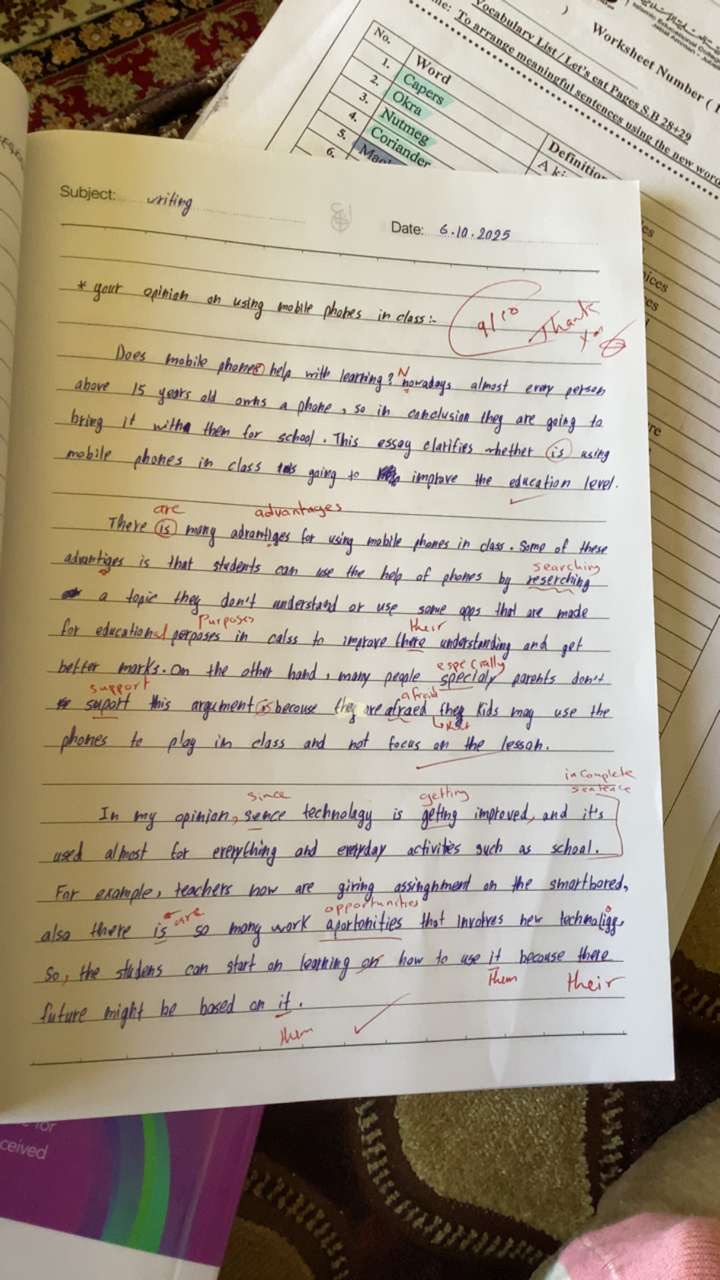 Vocabulary List / Let's eat Pages S.B 28+29
Worksheet Number (
To arrange meaningful sentences using the new
No.
Word
1.
Capers
2.
Okra
3.
Nutmeg
4.
Coriander
5.
6.
A
Subject: writing
Date: 6.10.2025
* your opinion on using mobile phones in class:-
9/10
Thank
Does mobile phones help with learning? nowadays almost every person
N
above 15 years old owns a phone, so in conclusion they are going to
bring it with them for school. This essay clarifies whether is using
mobile phones in class going to improve the education level.
are advantages
There is many advantiges for using mobile phones in class. Some of these
searching
advantiges is that students can use the help of phones by reserching
a topic they don't understand or use some apps that are made
Purposes their
for educational perposes in calss to improve there understanding and get
especially
better marks. On the other hand, many people specialy parents don't
support afraid
suport this argument is becouse they are afraed they Kids may use the
phones to play in class and not focus on the lesson.
since getting incomplete sentence
In my opinion, sence technology is geting improved, and it's
used almost for everything and everyday activities such as school.
For example, teachers now are giving assinghment on the smartbored,
are opportunities
also there is so many work aportonities that involves new technoligy,
So, the studens can start on learning on how to use it because there
them their
future might be based on it.
them
ceived